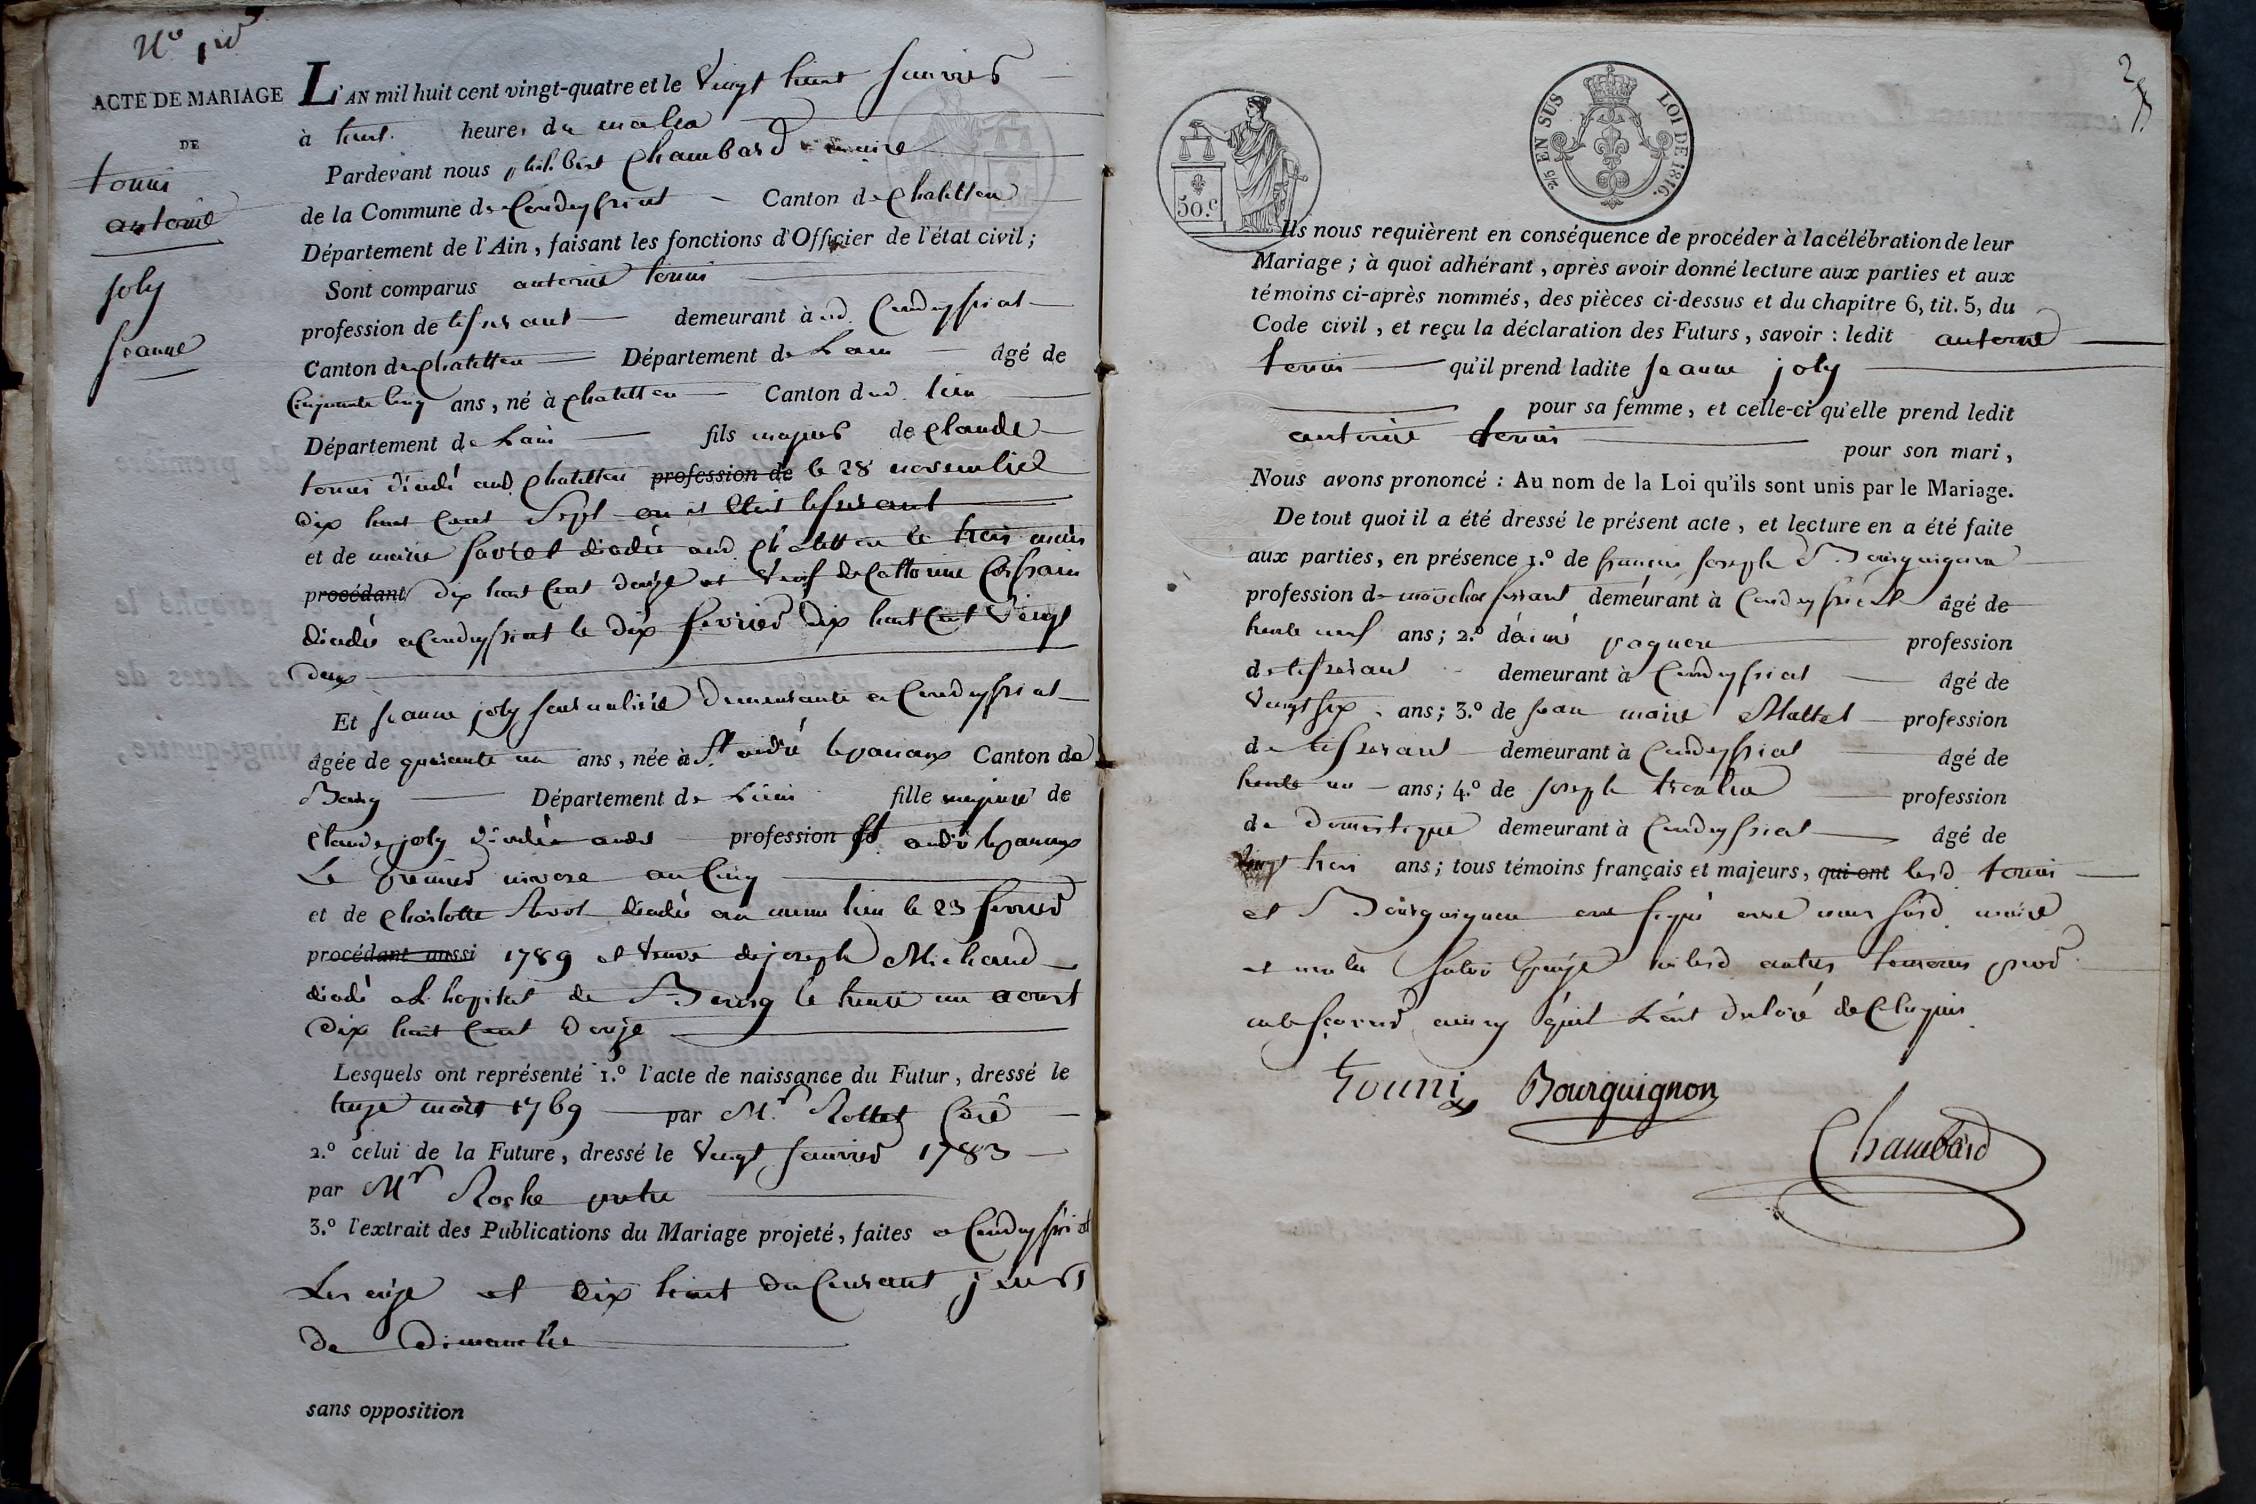 N.o 1er
ACTE DE MARIAGE
DE
tonni
antoine
joly
jeanne
L'AN mil huit cent vingt-quatre et le Vingt huit janvier
à huit heures du matin
Pardevant nous philibert Chambard maire
de la Commune de Condeyssiat Canton de Chatillon
Département de l'Ain, faisant les fonctions d'Officier de l'état civil;
Sont comparus antoine tonni
profession de tisserant demeurant à ud. Condeyssiat
Canton de Chatillon Département de Lain âgé de
Cinquante cinq ans, né à Chatillon Canton dud. lieu
Département de Lain fils majeur de Claude
tonni décédé aud. Chatillon profession de le 28 novembre
dix huit Cent Sept ou il etoit tisserant
et de marie décédée aud. Chatillon le trois
procédant dix huit Cent douze et Veuf de Catterine
décédée a Condeyssiat le dix fevrier dix huit Cent Vingt
deux
Et jeanne joly journalière demeurante a Condeyssiat
âgée de quarante un ans, née à St. andré lepanoux Canton de
Bourg Département de Lain fille majeure de
Claude joly décédé profession St. andré lepanoux
Le premier nivose an Cinq
et de Charlotte décédée au meme lieu le 23 fevrier
procédant aussi 1789 et Veuve de joseph Michaud
décédé a L'hopital de Bourg le trente un aoust
dix huit Cent douze
Lesquels ont représenté 1.o l'acte de naissance du Futur, dressé le
treize mars 1769 par M.r Rottet Curé
2.o celui de la Future, dressé le Vingt janvier 1783
par M.r Roche pretre
3.o l'extrait des Publications du Mariage projeté, faites a Condeyssiat
Les onze et dix huit du Courant jours
de dimanche
sans opposition
2
50.c
2/5 EN SUS LOI DE 1816.
Ils nous requièrent en conséquence de procéder à la célébration de leur
Mariage; à quoi adhérant, après avoir donné lecture aux parties et aux
témoins ci-après nommés, des pièces ci-dessus et du chapitre 6, tit. 5, du
Code civil, et reçu la déclaration des Futurs, savoir: ledit antoine
tonni qu'il prend ladite jeanne joly
pour sa femme, et celle-ci qu'elle prend ledit
antoine tonni pour son mari,
Nous avons prononcé: Au nom de la Loi qu'ils sont unis par le Mariage.
De tout quoi il a été dressé le présent acte, et lecture en a été faite
aux parties, en présence 1.o de françois joseph Bourguignon
profession de demeurant à Condeyssiat âgé de
trente neuf ans; 2.o de paguere profession
de tisserant demeurant à Condeyssiat âgé de
Vingt six ans; 3.o de jean marie Mattet profession
de tisserant demeurant à Condeyssiat âgé de
trente un ans; 4.o de joseph profession
de domestique demeurant à Condeyssiat âgé de
Vingt trois ans; tous témoins français et majeurs, qui ont lesd tonni
et Bourguignon ont signé avec nous susd. maire
et non la future Epouze ni lesd autres temoins pour
ne le sçavoir ainsy qu'il L'ont déclaré de Ce requis
tonni Bourguignon
Chambard